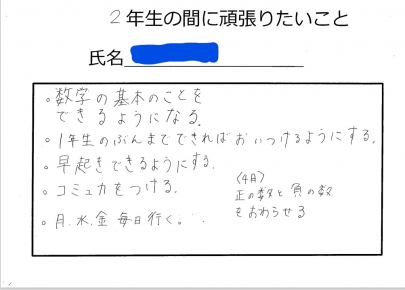 2年生の間に頑張りたいこと
氏名
。数学の基本のことを
できるようになる。
。1年生のぶんまでできればおいつけるようにする。
。早起きできるようにする。
。コミュカをつける。
。月、水、金 毎日行く。
(4月)
正の数と負の数
をおわらせる